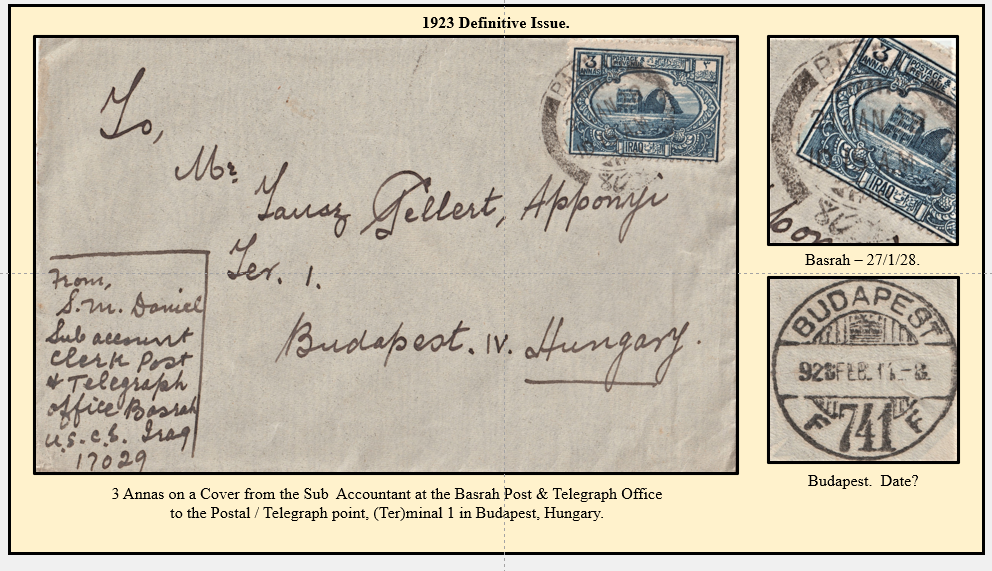 1923 Definitive Issue.
To,
Mr
Gellert, Apponyi
Ter. 1.
Budapest. IV. Hungary.
From,
S. M. Daniel
Sub account
Clerk Post
& Telegraph
office Basrah
U.S.C.S. Iraq
17029
3
ANNAS
٣
IRAQ
3
ANNAS
POSTAGE &
REVENUE
IRAQ
Basrah – 27/1/28.
BUDAPEST
928 FEB. 11.-8.
F 741 F
Budapest. Date?
3 Annas on a Cover from the Sub Accountant at the Basrah Post & Telegraph Office
to the Postal / Telegraph point, (Ter)minal 1 in Budapest, Hungary.